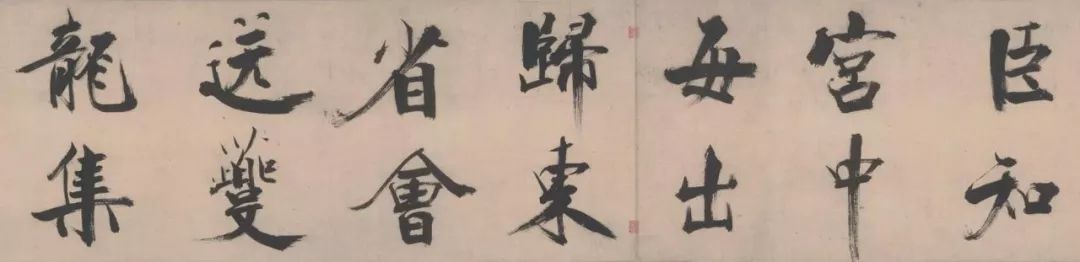 臣知
宮中
每出
歸東
省會
送夔
龍集